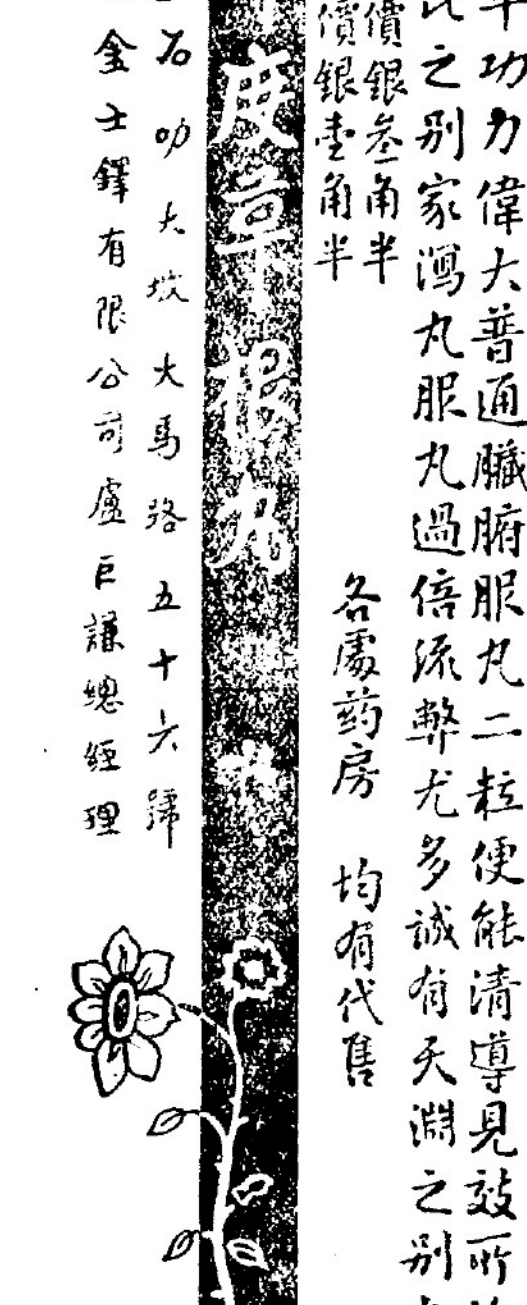 功力偉大普通臟腑服丸二粒便能清導見效所
之別家瀉丸服丸過倍流弊尤多誠有天淵之別
價銀叁角半
價銀壹角半
各處药房 均有代售
草根丸
石叻大坡大馬路五十六號
金士鐸有限公司盧巨謙總經理